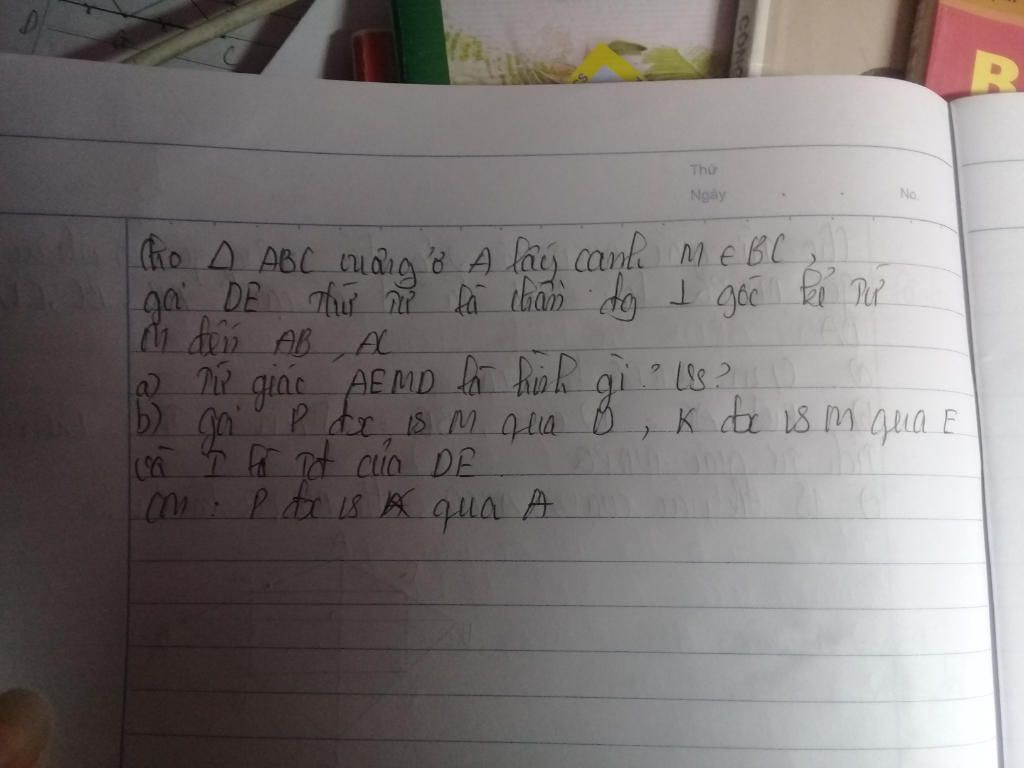 D
C
B
Thứ
Ngày . . No.
Cho Δ ABC vuông ở A lấy cạnh M ∈ BC,
gọi DE thứ tự là chân đg ⊥ góc kẻ từ
M đến AB, AC
a) Tứ giác AEMD là hình gì? Vs?
b) gọi P đx vs M qua D, K đx vs M qua E
và I là tđ của DE
CM: P đx vs K qua A